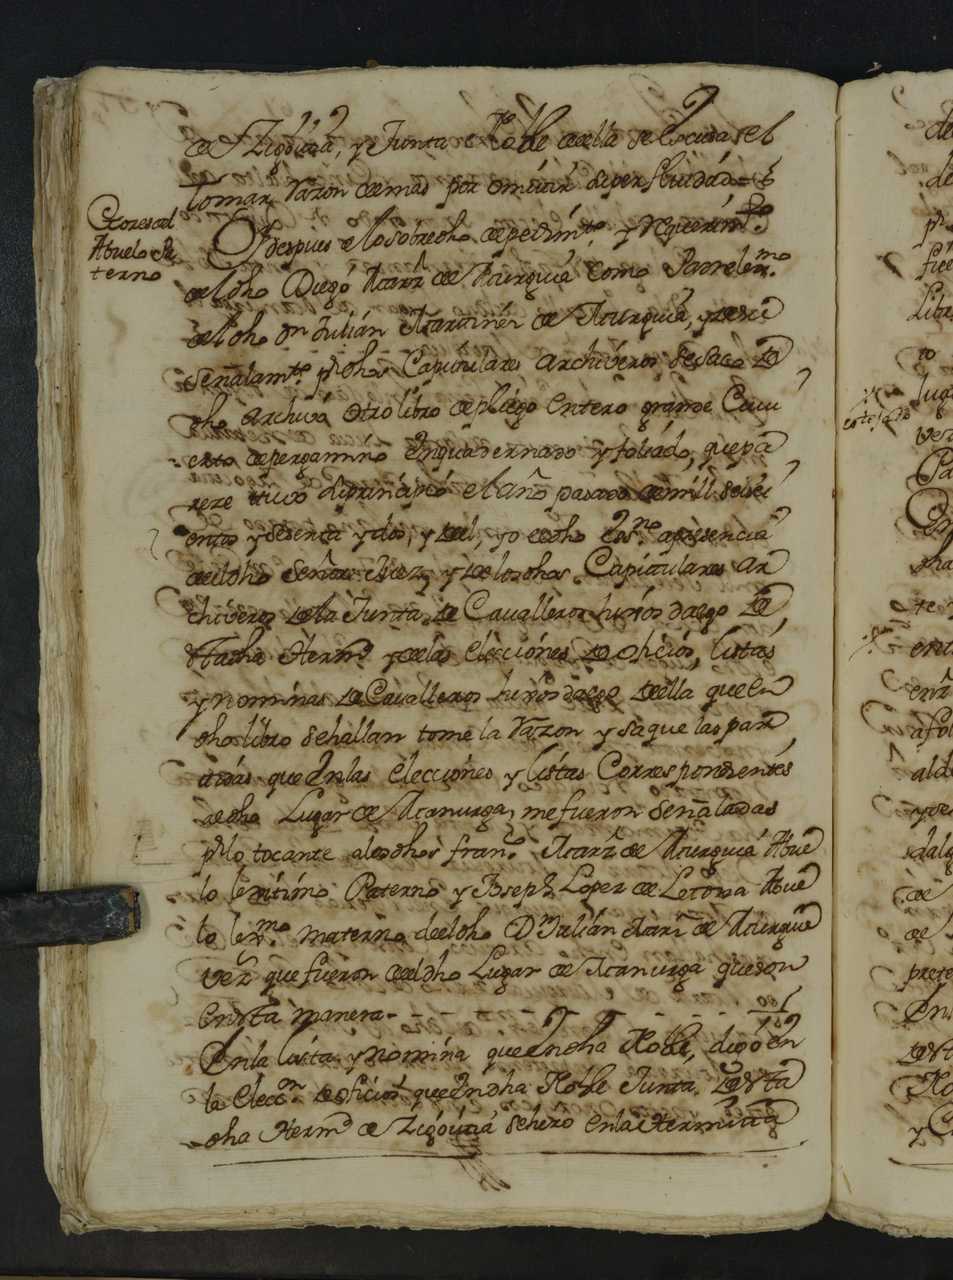 de Zigoitia, y Junta noble de ella se escusa el
tomar Razon demas por omitir superfluidad
Ofizios del
Abuelo Pa
terno
Y despues de lo sobredho de pedimto y Requerimto
del dho Diego Martz de Murguia como Padre lexmo
del dho Dn Julián Martinez de Murguia, y de su
señalamto pr dhos Capitulares Archiveros se saco de
dho archivo otro libro de pliego entero grande cuvi
erto de pergamino enquadernado y foliado, que pa
reze tuvo su principio el año pasado de mill seisci
entos y sesenta y dos, y de el, yo el dho Essno a presencia
del dho Señor Juez, y de los dhos Capitulares Ar
chiveros de la Junta de Cavalleros hijos dalgo de
dha Hermd y de las elecciones de oficios, listas
y nominas de Cavalleros hijos dalgo de ella que en
dho libro se hallan tome la Razon y saque las part
idas que en las elecciones y listas Correspondientes
a dho Lugar de Manurga, me fueron señaladas
pr lo tocante a los dhos Franco Martz de Murguia Abue
lo lexitimo Paterno y Joseph Lopez de Letona Abue
lo lexmo materno del dho Dn Julián Martz de Murguia
vezs que fueron del dho Lugar de Manurga que son
en esta manera
En la lista y nomina que en dha Noble, digo en
la eleccon de oficios que en dha Noble Junta de esta
dha Hermd de Zigoitia se hizo en la Hermita